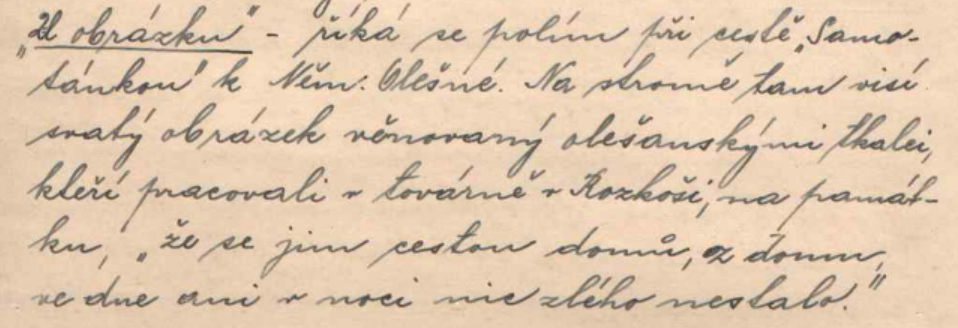 „U obrázku" - říká se polím při cestě „Samo-
tánkou" k Něm. Olešné. Na stromě tam visí
svatý obrázek věnovaný olešanskými tkalci,
kteří pracovali v továrně v Rozkoši, na památ-
ku, „že se jim cestou domů, z domu,
ve dne ani v noci nic zlého nestalo."